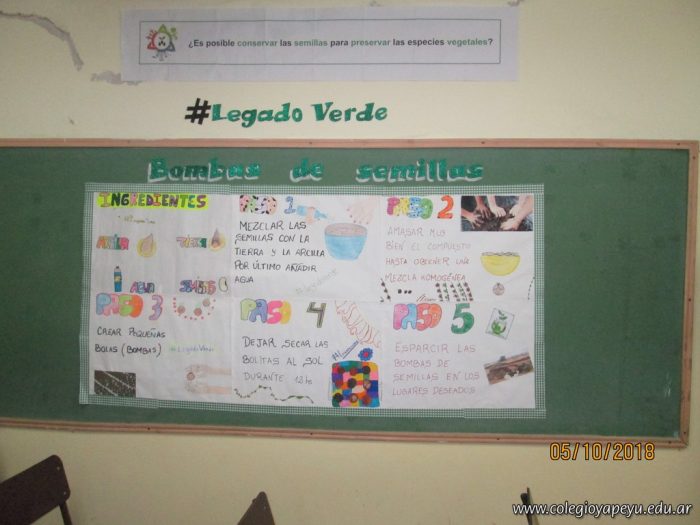 ¿Es posible conservar las semillas para preservar las especies vegetales?
#Legado Verde
Bombas de semillas
INGREDIENTES
ARCILLA
TIERRA
AGUA
SEMILLAS
PASO 1
MEZCLAR LAS
SEMILLAS CON LA
TIERRA Y LA ARCILLA
POR ÚLTIMO AÑADIR
AGUA
PASO 2
AMASAR MUY
BIEN EL COMPUESTO
HASTA OBTENER UNA
MEZCLA HOMOGÉNEA
PASO 3
CREAR PEQUEÑAS
BOLAS (BOMBAS)
#LegadoVerde
PASO 4
DEJAR SECAR LAS
BOLITAS AL SOL
DURANTE 12 hs
PASO 5
ESPARCIR LAS
BOMBAS DE
SEMILLAS EN LOS
LUGARES DESEADOS
05/10/2018
www.colegioyapeyu.edu.ar